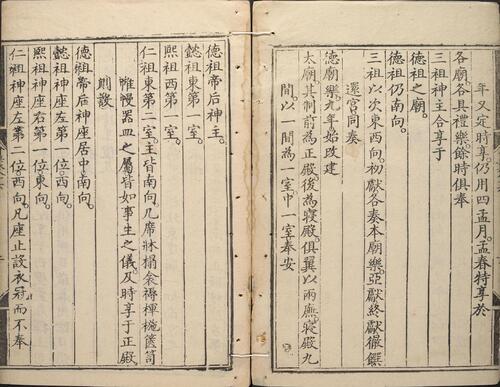 年又定時享仍用四孟月孟春特享於
各廟各具禮樂餘時俱奉
三祖神主合享于
德祖之廟
德祖仍南向
三祖以次東西向初獻各奏本廟樂亞獻終獻徹饌
還宮同奏
德廟樂九年始改建
太廟其制前為正殿後為寢殿俱翼以兩廡寢殿九
間以一間為一室中一室奉安
德祖帝后神主
懿祖東第一室
熙祖西第一室
仁祖東第二室主皆南向几席牀榻衾褥楎椸篋笥
帷幔器皿之屬皆如事生之儀及時享于正殿
則設
德祖帝后神座居中南向
懿祖神座左第一位西向
熙祖神座右第一位東向
仁祖神座左第二位西向凡座止設衣冠而不奉